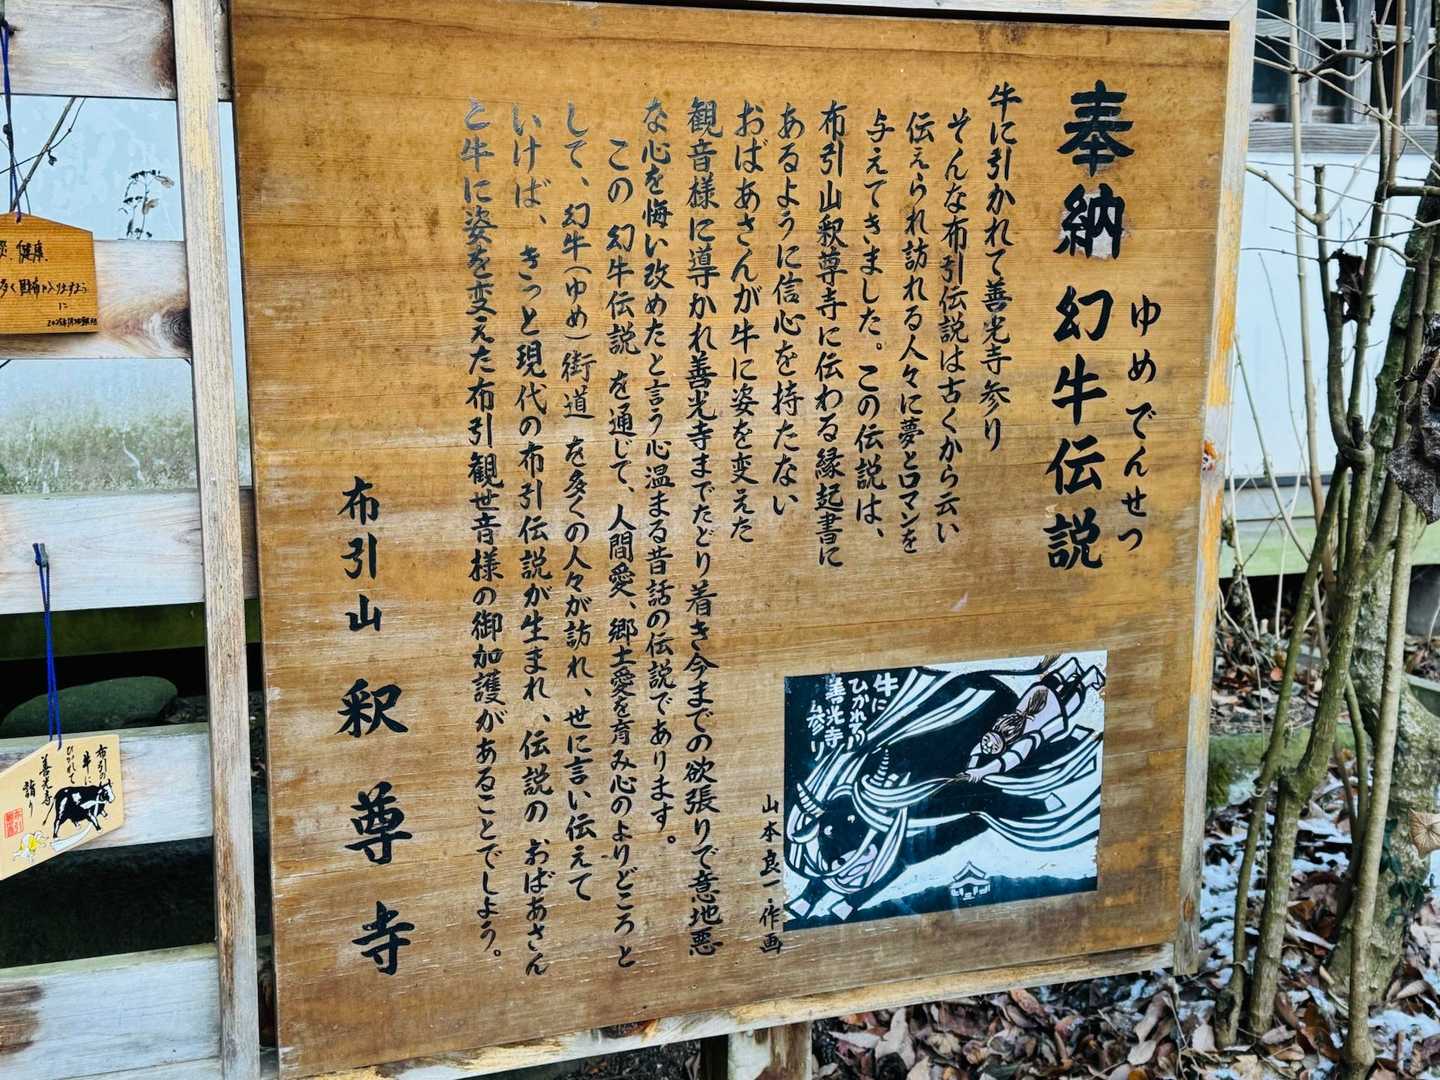 奉納 幻牛伝説
ゆめでんせつ
牛に引かれて善光寺参り
そんな布引伝説は古くから云い
伝えられ訪れる人々に夢とロマンを
与えてきました。この伝説は、
布引山釈尊寺に伝わる縁起書に
あるように信心を持たない
おばあさんが牛に姿を変えた
観音様に導かれ善光寺までたどり着き今までの欲張りで意地悪
な心を悔い改めたと言う心温まる昔話の伝説であります。
この 幻牛伝説 を通じて、人間愛、郷土愛を育み心のよりどころ と
して、幻牛(ゆめ)街道 を多くの人々が訪れ、世に言い伝えて
いけば、きっと現代の布引伝説が生まれ、伝説の おばあさん
と牛に姿を変えた布引観世音様の御加護があることでしよう。
布引山 釈尊寺
牛に
ひかれて
善光寺
参り
山本良一・作画
健康
に
布引の
牛に
ひかれて
善光寺
詣り